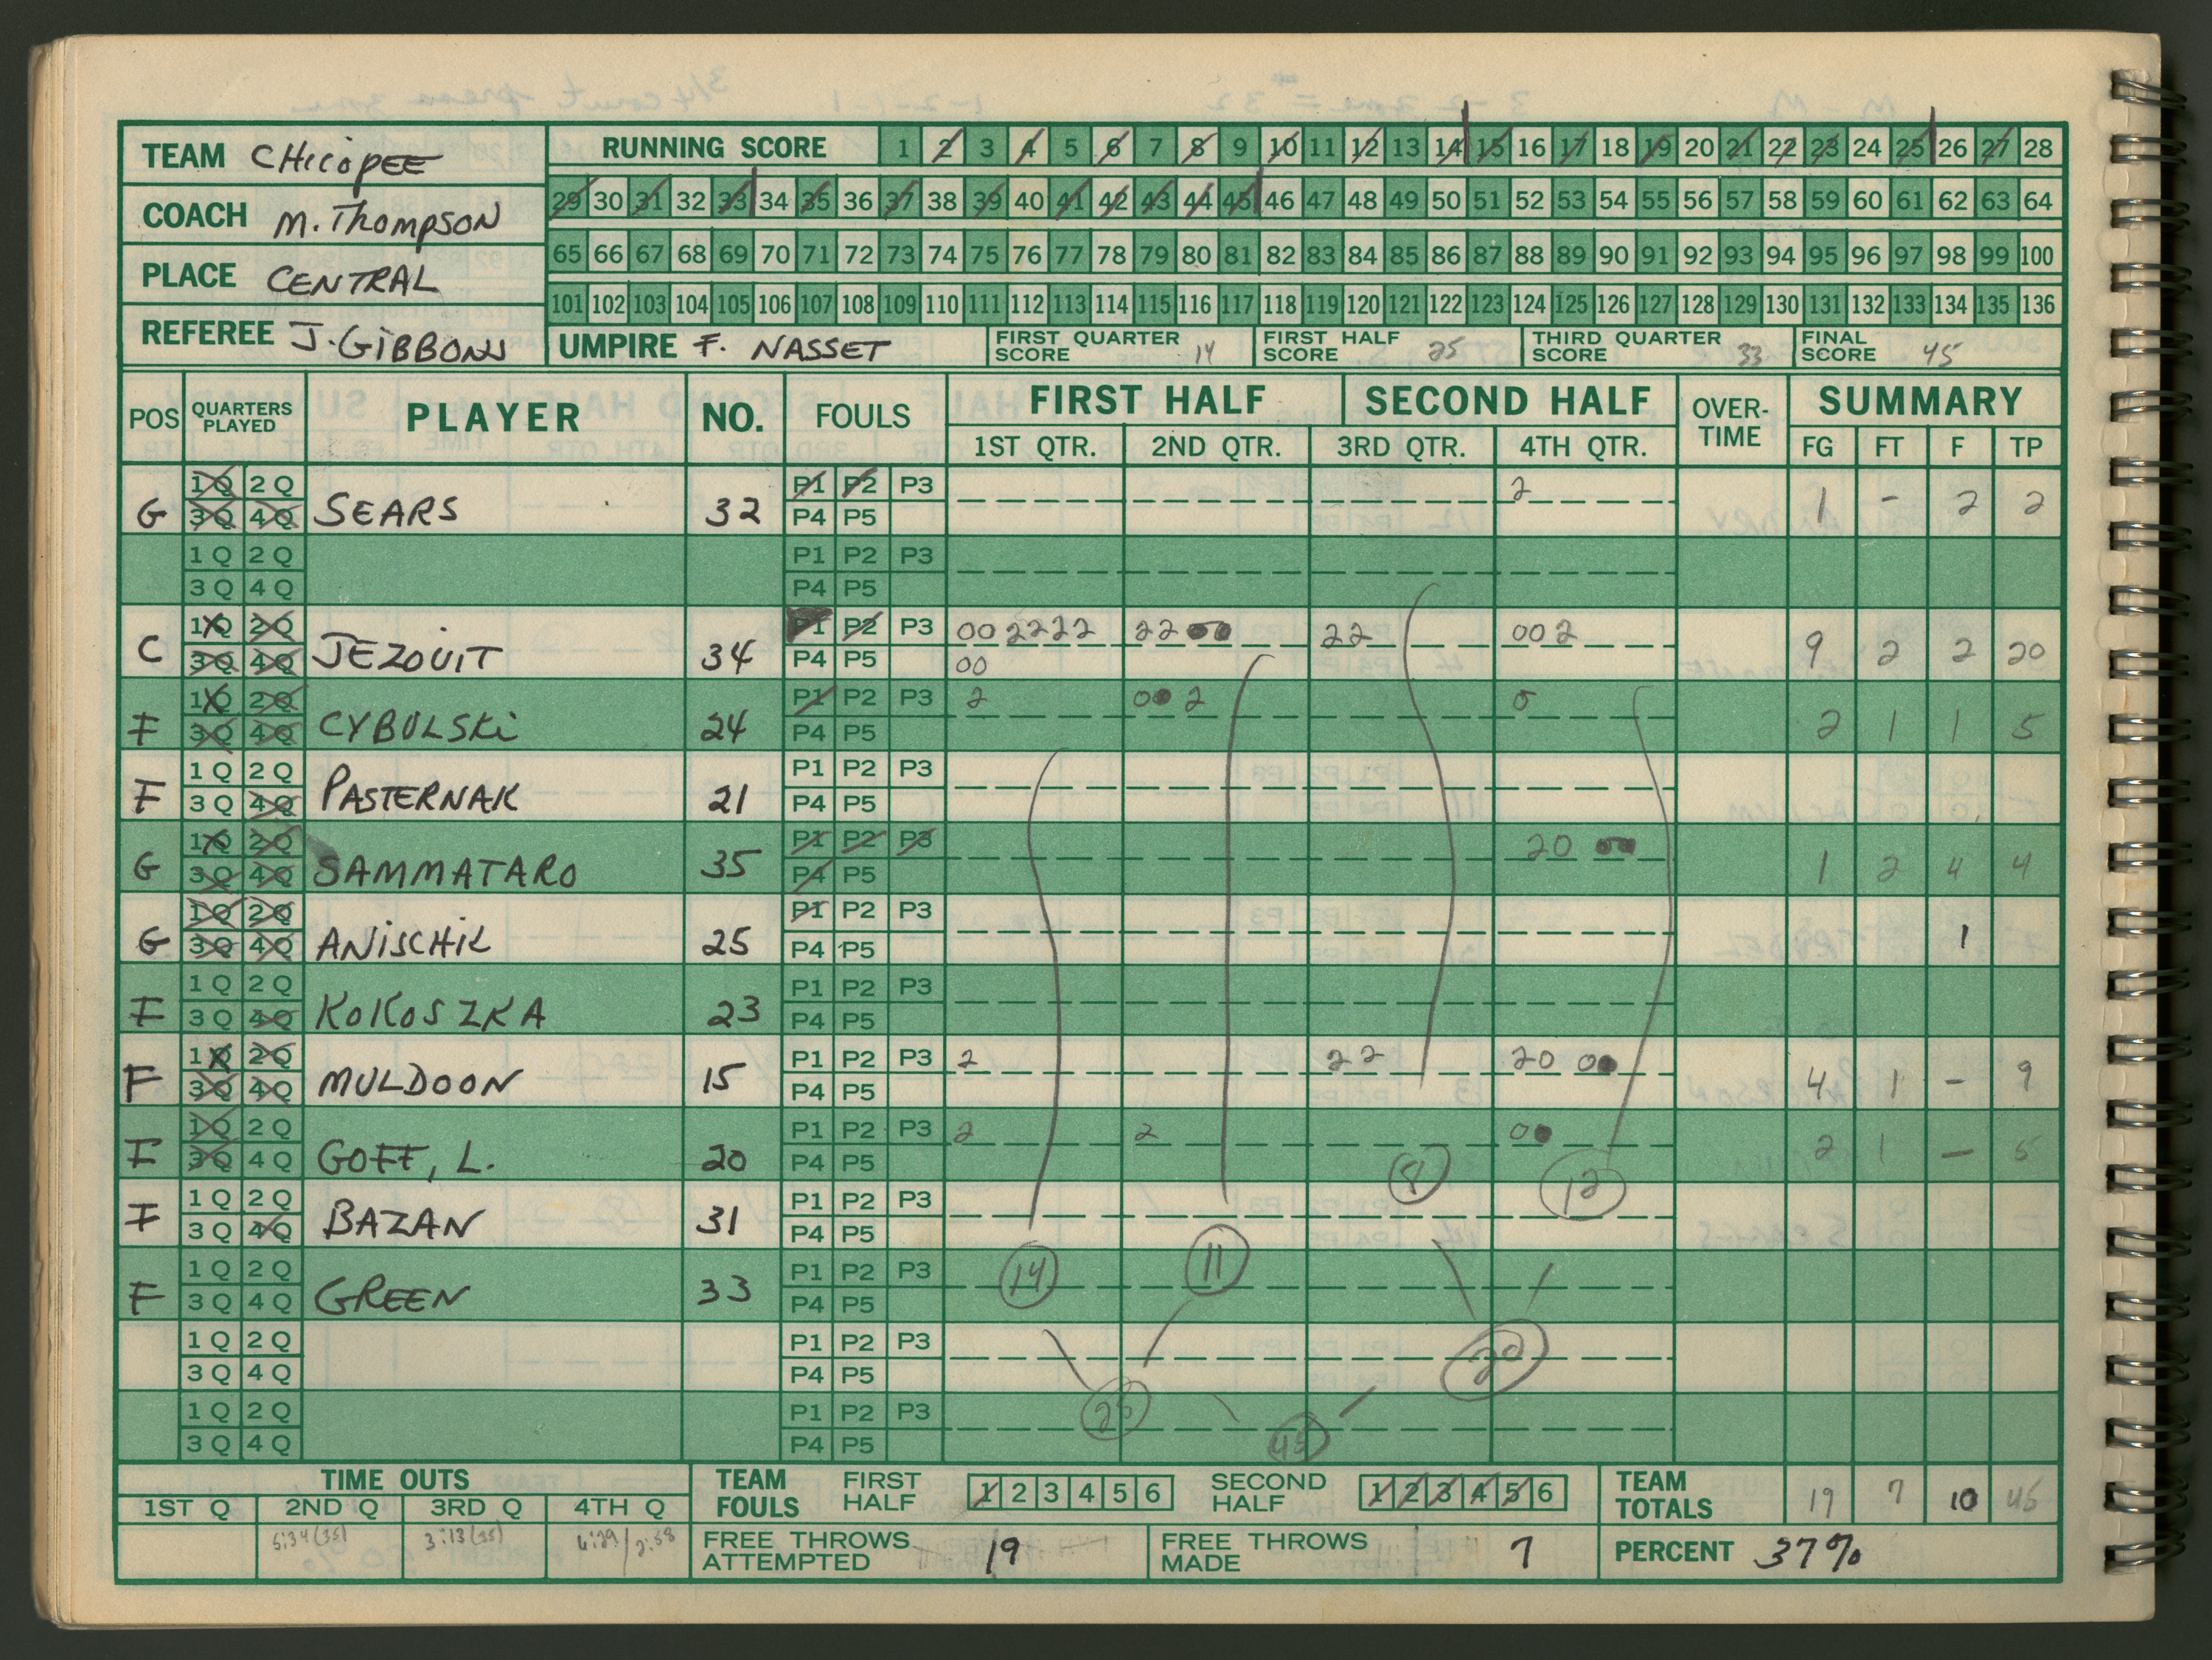 TEAM CHicopEE
COACH M. Thompson
PLACE CENTRAL
REFEREE J. GiBBONS
RUNNING SCORE 1 2 3 4 5 6 7 8 9 10 11 12 13 14 15 16 17 18 19 20 21 22 23 24 25 26 27 28
29 30 31 32 33 34 35 36 37 38 39 40 41 42 43 44 45 46 47 48 49 50 51 52 53 54 55 56 57 58 59 60 61 62 63 64
65 66 67 68 69 70 71 72 73 74 75 76 77 78 79 80 81 82 83 84 85 86 87 88 89 90 91 92 93 94 95 96 97 98 99 100
101 102 103 104 105 106 107 108 109 110 111 112 113 114 115 116 117 118 119 120 121 122 123 124 125 126 127 128 129 130 131 132 133 134 135 136
UMPIRE F. NASSET FIRST QUARTER SCORE 14 FIRST HALF SCORE 25 THIRD QUARTER SCORE 33 FINAL SCORE 45
POS QUARTERS PLAYED PLAYER NO. FOULS FIRST HALF SECOND HALF OVER-TIME SUMMARY
1ST QTR. 2ND QTR. 3RD QTR. 4TH QTR. FG FT F TP
1Q 2Q P1 P2 P3 2
G 3Q 4Q SEARS 32 P4 P5 1 - 2 2
1Q 2Q P1 P2 P3
3Q 4Q P4 P5
1Q 2Q P1 P2 P3 00 2222 22 00 22 00 2
C 3Q 4Q JEZOUIT 34 P4 P5 00 9 2 2 20
1Q 2Q P1 P2 P3 2 00 2 0
F 3Q 4Q CYBULSKi 24 P4 P5 2 1 1 5
1Q 2Q P1 P2 P3
F 3Q 4Q PASTERNAK 21 P4 P5
1Q 2Q P1 P2 P3 20 00
G 3Q 4Q SAMMATARO 35 P4 P5 1 2 4 4
1Q 2Q P1 P2 P3
G 3Q 4Q ANiSCHiK 25 P4 P5 1
1Q 2Q P1 P2 P3
F 3Q 4Q KOKOSZKA 23 P4 P5
1Q 2Q P1 P2 P3 2 22 20 00
F 3Q 4Q MULDOON 15 P4 P5 4 1 - 9
1Q 2Q P1 P2 P3 2 2 00
F 3Q 4Q GOFF, L. 20 P4 P5 2 1 - 5
8 12
1Q 2Q P1 P2 P3
F 3Q 4Q BAZAN 31 P4 P5
14 11
1Q 2Q P1 P2 P3
F 3Q 4Q GREEN 33 P4 P5
1Q 2Q P1 P2 P3
3Q 4Q P4 P5
20
1Q 2Q P1 P2 P3
3Q 4Q P4 P5
25 45
TIME OUTS
1ST Q 2ND Q 3RD Q 4TH Q
5:34 (35) 3:13 (35) 4:29 / 2:58
TEAM FOULS FIRST HALF 1 2 3 4 5 6 SECOND HALF 1 2 3 4 5 6 TEAM TOTALS 19 7 10 45
FREE THROWS ATTEMPTED 19 FREE THROWS MADE 7 PERCENT 37%